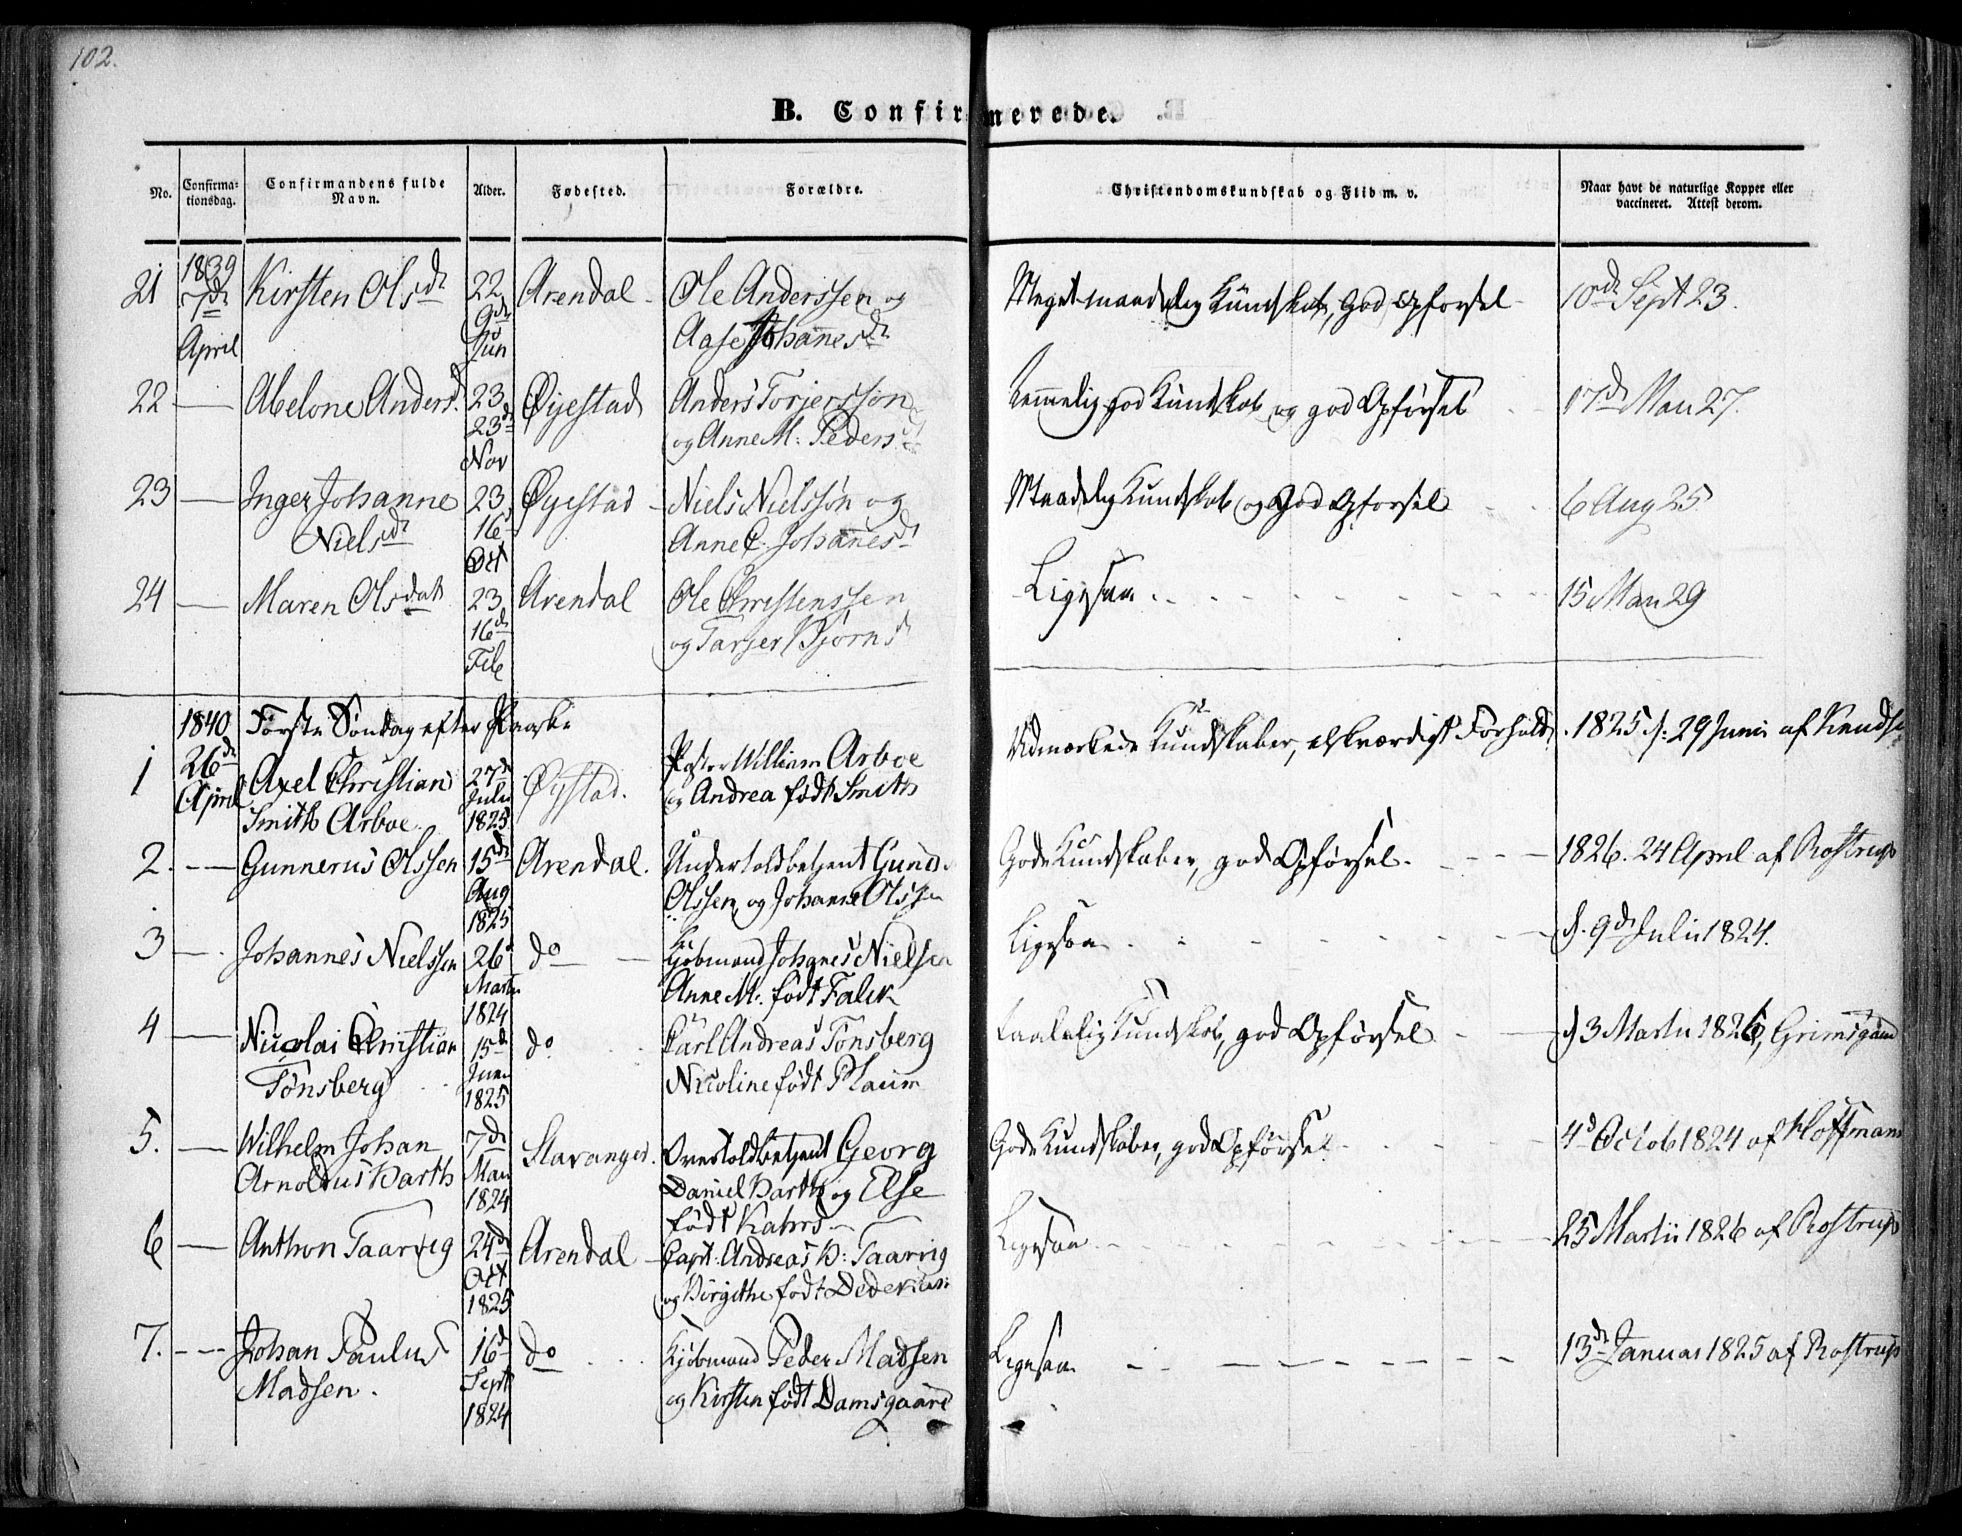 102.
B. Confirmerede.
No. Confirmationsdag. Confirmandens fulde Navn. Alder. Fødested. Forældre. Christendomskundskab og Flid m. v. Naar havt de naturlige Kopper eller vaccineret. Attest derom.
21 1839 7de April Kirsten Olsdtr 22 9de Jun Arendal Ole Anderssen og
Aase Johannesdr Meget maadelig Kundskab, God Opførsel 10de Sept 23.
22 — Abelone Andersd. 23 23de Nov Øyestad Anders Torjerssøn
og Anne M. Pedersdt Temmelig god Kundskab og god Opførsel 17de Mau 27.
23 — Inger Johanne
Nielsdtr 23 16 Oct Øyestad Niels Nielssøn og
Anne C. Johannesdt Maadelig Kundskab og God Opførsel 6 Aug 25
24 — Maren Olsdatr 23 16de Feb Arendal Ole Christenssen
og Tarjer Bjørnsdt Ligesaa 15 Mau 29
1840 Første Søndag efter Paaske
1 26de April Axel Christian
Smith Arboe 27de Julii 1825 Øystad. Pastor William Arboe
og Andrea født Smith Udmærkede Kundskaber, elskværdigt Forhold. 1825 d. 29 Juni af
2. — Gunnerus Olssen 15de Aug 1825 Arendal. Undertoldbetjent
Olssen og Johanne Olssen Gode Kundskaber, god Opførsel. 1826. 24 April af Rostrup
3 — Johannes Nielssen 26d Martii 1824 do Kjøbmand Johannes Nielsen
Anne M. født Falck Ligesaa d. 9de Julii 1824.
4 — Nicolai Christian
Tønsberg 15d Juni 1825 do Carl Andreas Tønsberg
Nicoline født Plaum Taalelig Kundskab, god Opførsel d 3 Martii 1826,
5. — Wilhelm Johan
Arnoldus Barth 7de Mau 1824 Stavanger. Overtoldbetjent Georg
Daniel Barth og Else
født Kahrs Gode Kundskaber, god Opførsel 4d Octob 1824 af Hoffmann
6 — Anthon Taarvig 24d Oct 1825 Arendal Capt. Andreas B. Taarvig
og Birgithe født Ligesaa 25 Martii 1826 af Rostrup
7. — Johan Paulus
Madsen. 16d Sept 1824 do Kjøbmand Peder Madsen
og Kirsten født Damsgaard Ligesaa 13de Januar 1825 af Rostrup